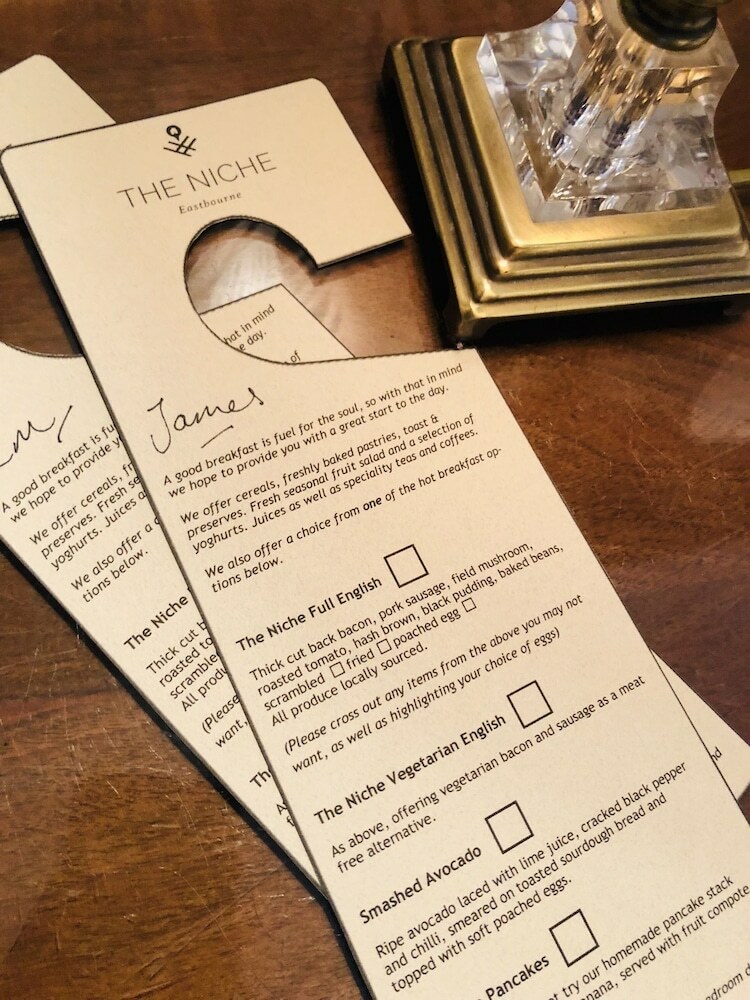 THE NICHE
Eastbourne
hat in mind
the day.
of
James
A good breakfast is fuel for the soul, so with that in mind
we hope to provide you with a great start to the day.
We offer cereals, freshly baked pastries, toast &
preserves. Fresh seasonal fruit salad and a selection of
yoghurts. Juices as well as speciality teas and coffees.
We also offer a choice from one of the hot breakfast op-
tions below.
The Niche Full English
Thick cut back bacon, pork sausage, field mushroom,
roasted tomato, hash brown, black pudding, baked beans,
scrambled fried poached egg
All produce locally sourced.
(Please cross out any items from the above you may not
want, as well as highlighting your choice of eggs)
The Niche Vegetarian English
As above, offering vegetarian bacon and sausage as a meat
free alternative.
Smashed Avocado
Ripe avocado laced with lime juice, cracked black pepper
and chilli, smeared on toasted sourdough bread and
topped with soft poached eggs.
Pancakes
try our homemade pancake stack
served with fruit compote
A good breakfast is fu
we hope to provide y
We offer cereals, fr
preserves. Fresh se
yoghurts. Juices a
We also offer a c
tions below.
The Niche
Thick cut b
roasted to
scramble
All prod
(Please
want,
Th